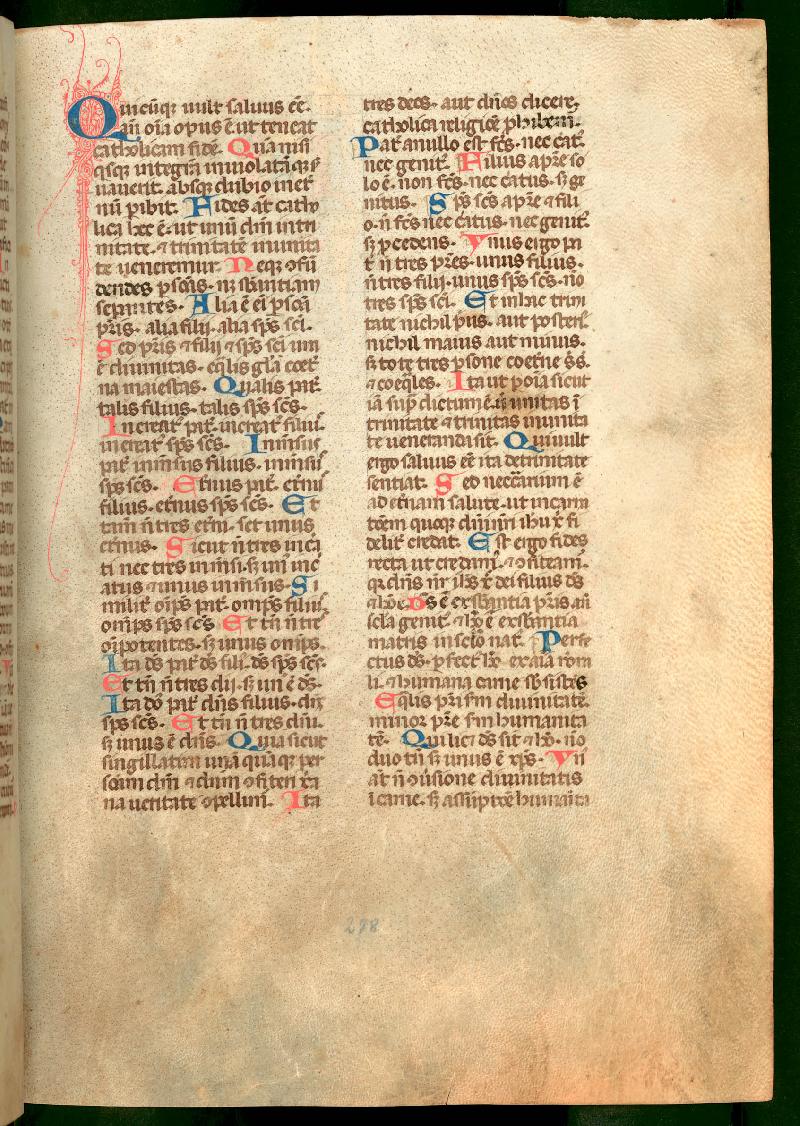 Quicūq; uult saluus eē.
an̄ oīa opus ē. ut teneat
catholicam fidē. Quā nisi
qsq; integrā inuiolatāq; s̄
uauerit. absq; dubio in et̄
nū ꝑibit. Fides aūt catho
lica hec ē. ut unū dm̄ in tri
nitate. ⁊ trinitatē in unita
te ueneremur. Neq; ꝯfū
dendes ꝑsonas. nz sb̄antiam
seꝑantes. Alia ē ei ꝑsoā
pr̄is. alia filij. alia sp̄s sc̄i.
Sed pr̄is ⁊ filij ⁊ sp̄s sc̄i um
ē diuinitas. eq̄lis gl̄a coet̄
na maiestas. Qualis pat̄.
talis filius. talis sp̄s sc̄s.
Increat̄ pat̄. increat̄ filiu.
increat̄ sp̄s sc̄s. Inm̄sus
pat̄ inm̄sus filius. inm̄sus
sp̄s sc̄s. Et̄nus pat̄. et̄nus
filius. et̄nus sp̄s sc̄s. Et
tam̄ n̄ tres et̄ni. set unus
et̄nus. Sicut n̄ tres incā
ti nec tres inm̄si. sz un̄ inc̄
atus ⁊ unus inm̄sus. Si
milit̄ om̄ps pat̄. omp̄s filiu.
om̄ps sp̄s sc̄s Et tn̄ n̄ tre
oīpotentes. sz unus om̄ps.
Ita ds̄ pat̄ ds̄ fili. ds̄ sp̄s sc̄s.
Et tn̄ n̄ tres dij. sz un̄ ē ds̄.
Ita do᷒ pat̄ dn̄s filius. dn̄s
sp̄s sc̄s. Et tn̄ n̄ tres dn̄i.
sz unus ē dn̄s. Quia sicut
singillatim unā quāq; per
soām dm̄ ⁊ dnm̄ ꝯfiteri x̄a
na ueritate ꝯpellim̄. Ita
tres deos. aut dn̄os dicere,
catholica religiōe ꝓhibemi.
Pat̄ a nullo est fc̄s. nec cāt̄.
nec genit̄. Filius a pr̄e so
lo ē. non fc̄s. nec cātus. sz ge
nitus. Sp̄s sc̄s a pr̄e ⁊ fili
o. n̄ fc̄s nec cātus. nec genit̄.
sz ꝓcedens. Unus ergo pa
t̄ n̄ tres pr̄es. unus filius.
n̄ tres filij. unus sp̄s sc̄s. nō
tres sp̄s sc̄i. Et in hac trini
tate nichil p̄us. aut posteri᷒.
nichil maius aut minus.
sz tote tres ꝑsone coet̄ne s̄s.
⁊ coeq̄les. Ita ut ꝑ oīa sicut
iā sup̄ dictum ē. ⁊ unitas ī
trinitate ⁊ trinitas in unita
te ueneranda sit. Qui uult
ergo saluus eē ita de trinitate
sentiat. Sed necc̄arium ē
ad et̄nam salutē. ut incarn̄
tōem quoq; dn̄i nr̄i ihu x̄ fi
delit̄ credat. Est ergo fides
recta ut credam̄. ⁊ ꝯfiteam̄.
q̄ dn̄s nr̄ ih̄s x̄ dei filius ds̄
⁊ hō ē. Ds̄ ē ex sb̄antia pr̄is an̄
scl̄a genit̄. ⁊ hō ē ex sb̄antia
matris in sclo᷒ nat̄. Perfe
ctus ds̄. ꝑfect̄ hō. ex aīa rom
li. ⁊ humana carne sb̄sistēs
Eq̄lis pr̄i sm̄ diuinitatē.
minor pr̄e sm̄ humanita
tē. Qui licz ds̄ sit ⁊ hō. nō
duo tn̄ sz unus ē xp̄s. Un̄
aūt n̄ ꝯūsione diuinitatis
ī carnē. sz assūptiōe humaīta
278